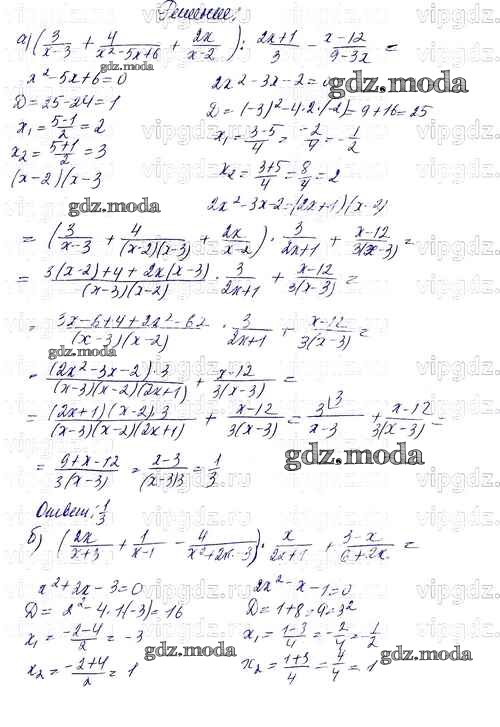 Решение:
а) (3/(x-3) + 4/(x²-5x+6) + 2x/(x-2)) : (2x+1)/3 - (x-12)/(9-3x) =
x²-5x+6=0
D=25-24=1
x₁=(5-1)/2=2
x₂=(5+1)/2=3
(x-2)(x-3
2x²-3x-2=0
D=(-3)²-4·2·(-2)=9+16=25
x₁=(3-5)/4=-2/4=-1/2
x₂=(3+5)/4=8/4=2
2x²-3x-2=(2x+1)(x-2)
= (3/(x-3) + 4/((x-2)(x-3)) + 2x/(x-2)) · 3/(2x+1) + (x-12)/(3(x-3)) =
= (3(x-2)+4+2x(x-3))/((x-3)(x-2)) · 3/(2x+1) + (x-12)/(3(x-3)) =
= (3x-6+4+2x²-6x)/((x-3)(x-2)) · 3/(2x+1) + (x-12)/(3(x-3)) =
= ((2x²-3x-2)·3)/((x-3)(x-2)(2x+1)) + (x-12)/(3(x-3)) =
= ((2x+1)(x-2)3)/((x-3)(x-2)(2x+1)) + (x-12)/(3(x-3)) = 3/(x-3) + (x-12)/(3(x-3)) =
= (9+x-12)/(3(x-3)) = (x-3)/((x-3)3) = 1/3
Ответ: 1/3
б) (2x/(x+3) + 1/(x-1) - 4/(x²+2x-3)) · x/(2x+1) + (3-x)/(6+2x) =
x²+2x-3=0
D=2²-4·1(-3)=16
x₁=(-2-4)/2=-3
x₂=(-2+4)/2=1
2x²-x-1=0
D=1+8=9=3²
x₁=(1-3)/4=-2/4=-1/2
x₂=(1+3)/4=4/4=1
gdz.moda
gdz.moda
gdz.moda
gdz.moda
gdz.moda
gdz.moda
gdz.moda